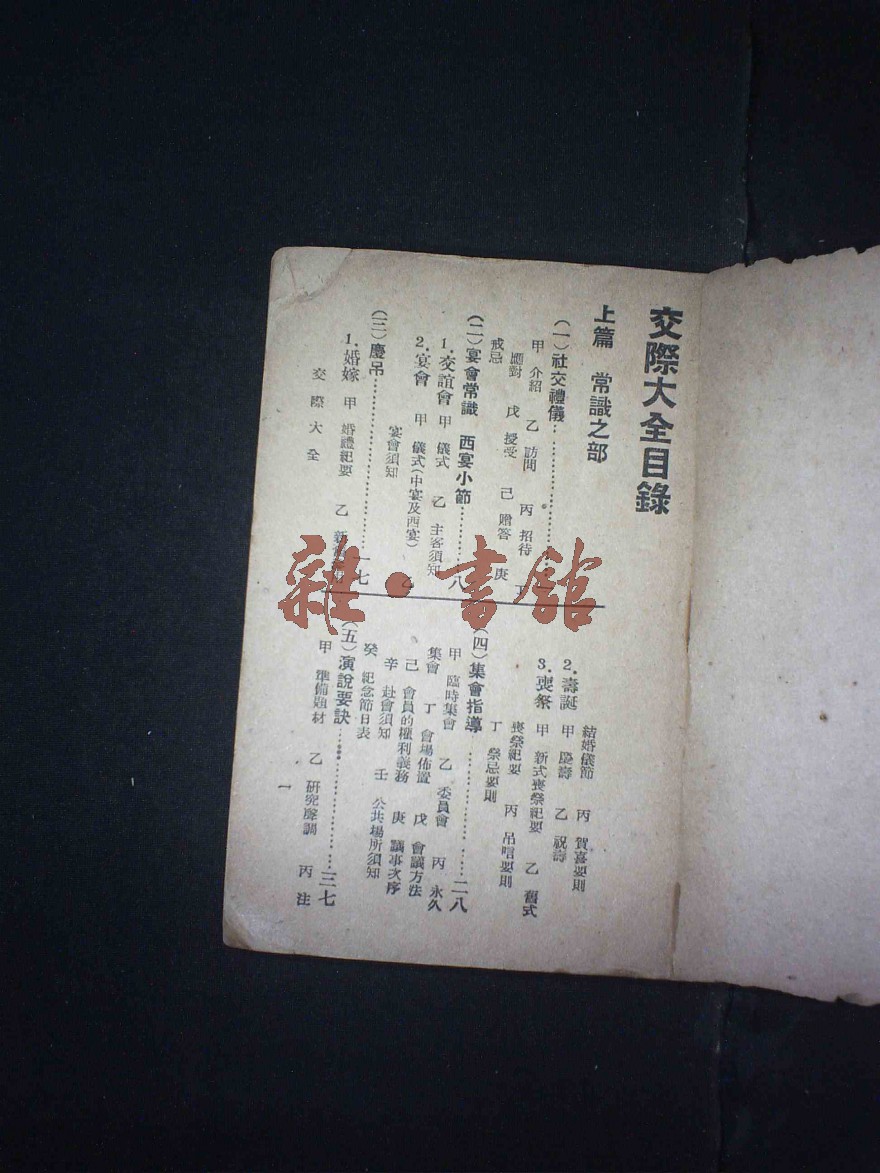 交際大全目錄
上篇 常識之部
(一)社交禮儀
甲 介紹 乙 訪問 丙 招待 丁
應對 戊 授受 己 贈答 庚
戒忌
(二)宴會常識 西宴小節……八
1.交誼會 甲 儀式 乙 主客須知
2.宴會 甲 儀式(中宴及西宴) 乙
宴會須知
(三)慶吊……一七
1.婚嫁 甲 婚禮紀要 乙 新
交際大全
結婚儀節 丙 賀喜要則
2.壽誕 甲 慶壽 乙 祝壽
3.喪祭 甲 新式喪祭紀要 乙 舊式
喪祭紀要 丙 吊唁要則
丁 祭忌要則
(四)集會指導……二八
甲 臨時集會 乙 委員會 丙 永久
集會 丁 會場佈置 戊 會議方法
己 會員的權利義務 庚 議事次序
辛 赴會須知 壬 公共場所須知
癸 紀念節日表
(五)演說要訣……三七
甲 準備題材 乙 研究聲調 丙 注
一
雜·書館